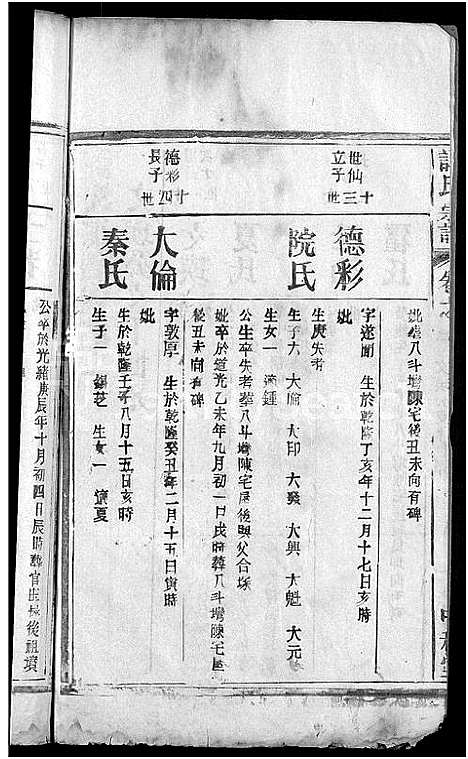 妣葬八斗塆陳宅後丑未向有碑
世仙立子
十三世
德彩
院氏
字遂園 生於乾隆丁亥年十二月十七日亥時
妣
生庚失考
生子六 大倫 大印 大發 大興 大魁 大元
生女一 適鍾
公生卒失考葬八斗塆陳宅屋後與父合塚
妣卒於道光乙未年九月初一日戌時葬八斗塆陳宅屋
後丑未向有碑
德彩長子
十四世
大倫
秦氏
字敦厚 生於乾隆癸丑年二月十五日寅時
妣
生於乾隆壬子年八月十五日亥時
生子一 生女一 適夏
公卒於光緒庚辰年十月初四日辰時葬官庄長後祖墳